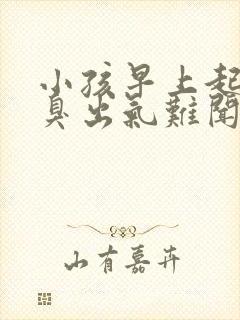 小孩早上起
臭出氣難聞
山有嘉卉